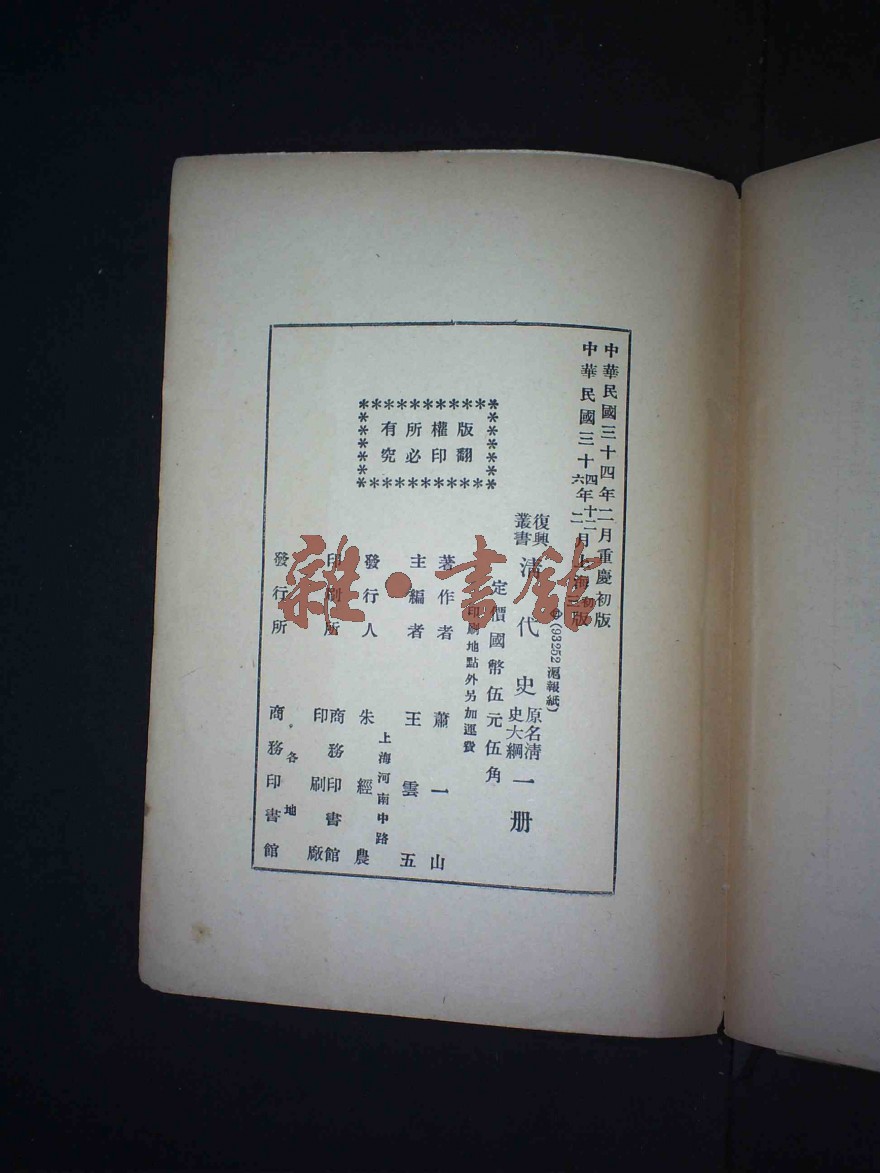 中華民國三十四年二月重慶初版
中華民國三十四年十二月上海初版
六年二月 三版
(93252滬報紙)
復興叢書
清代史
原名清史大綱
一册
定價國幣伍元伍角
印刷地點外另加運費
著作者 蕭一山
主編者 王雲五
上海河南中路
發行人 朱經農
印刷所 商務印書館印刷廠
各地
發行所 商務印書館
版權所有
翻印必究
雜·書館